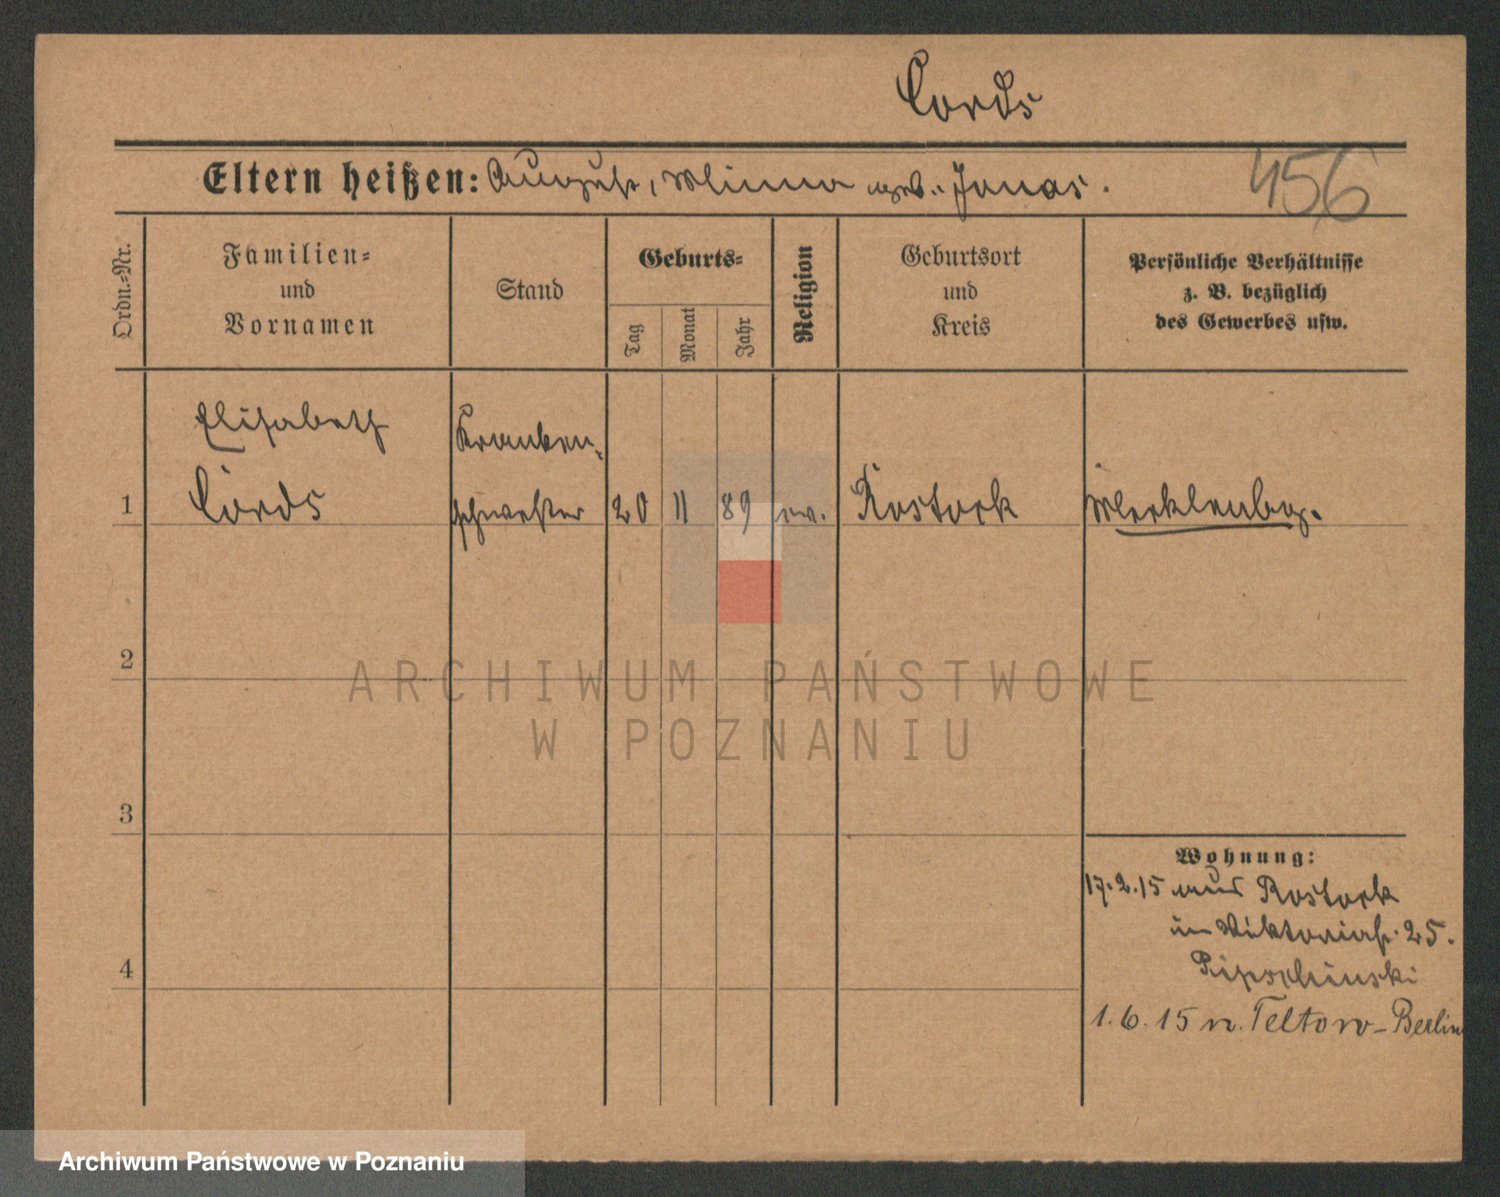 Cords
Eltern heißen: August, Minna geb. Jonas.
456
Ordn.-Nr.
Familien-
und
Vornamen
Stand
Geburts-
Tag
Monat
Jahr
Religion
Geburtsort
und
Kreis
Persönliche Verhältnisse
z. B. bezüglich
des Gewerbes usw.
Elisabeth
Kranken-
1 Cords schwester 20 11 89 ev. Rostock Mecklenbg.
2
3
4
Wohnung:
17.2.15 aus Rostock
in Viktoriastr. 25.
1.6.15 n. Teltow-Berlin
ARCHIWUM PAŃSTWOWE
W POZNANIU
Archiwum Państwowe w Poznaniu